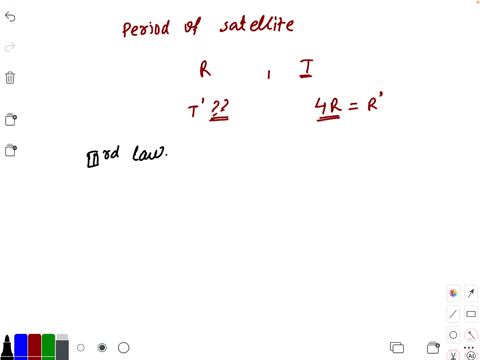 Period of satellite
R , T
T' ?? 4R = R'
IIIrd law.